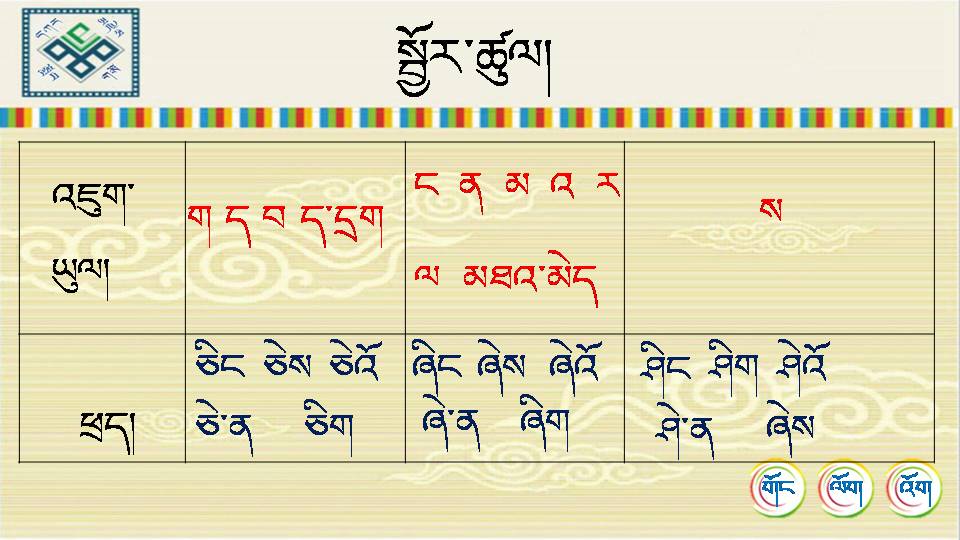 སྦྱོར་ཚུལ།
འཇུག་
ཡུལ།
ག ད བ ད་དྲག
ང ན མ འ ར
ལ མཐའ་མེད
ས
ཕྲད།
ཅིང ཅེས ཅེའོ
ཅེ་ན ཅིག
ཞིང ཞེས ཞེའོ
ཞེ་ན ཞིག
ཤིང ཤིག ཤེའོ
ཤེ་ན ཞེས
གོང ལོག འོག